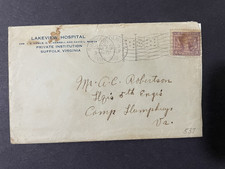 LAKEVIEW HOSPITAL
PRIVATE INSTITUTION
SUFFOLK, VIRGINIA
Mr. A. C. Robertson
Hqrs 5th Engrs
Camp Humphreys
Va.